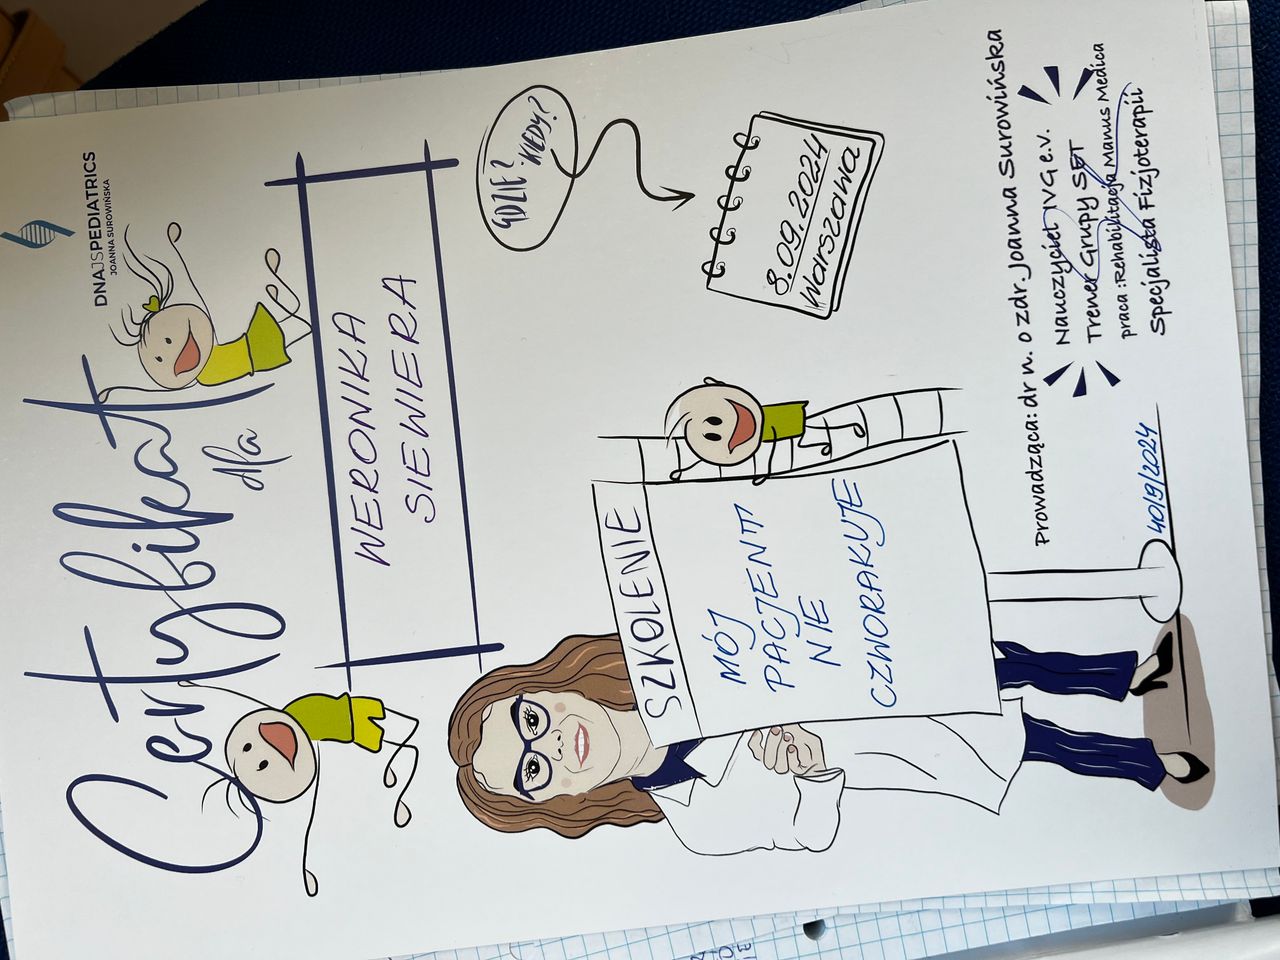 DNAJSPEDIATRICS
JOANNA SUROWIŃSKA
Certyfikat
dla
WERONIKA
SIEWIERA
GDZIE?
KIEDY?
8.09.2024
Warszawa
SZKOLENIE
MÓJ
PACJENT
NIE
CZWORAKUJE
Prowadząca: dr n. o zdr. Joanna Surowińska
Nauczyciel IVG e.V.
Trener Grupy SET
praca: Rehabilitacja Manus Medica
Specjalista Fizjoterapii
40/9/2024